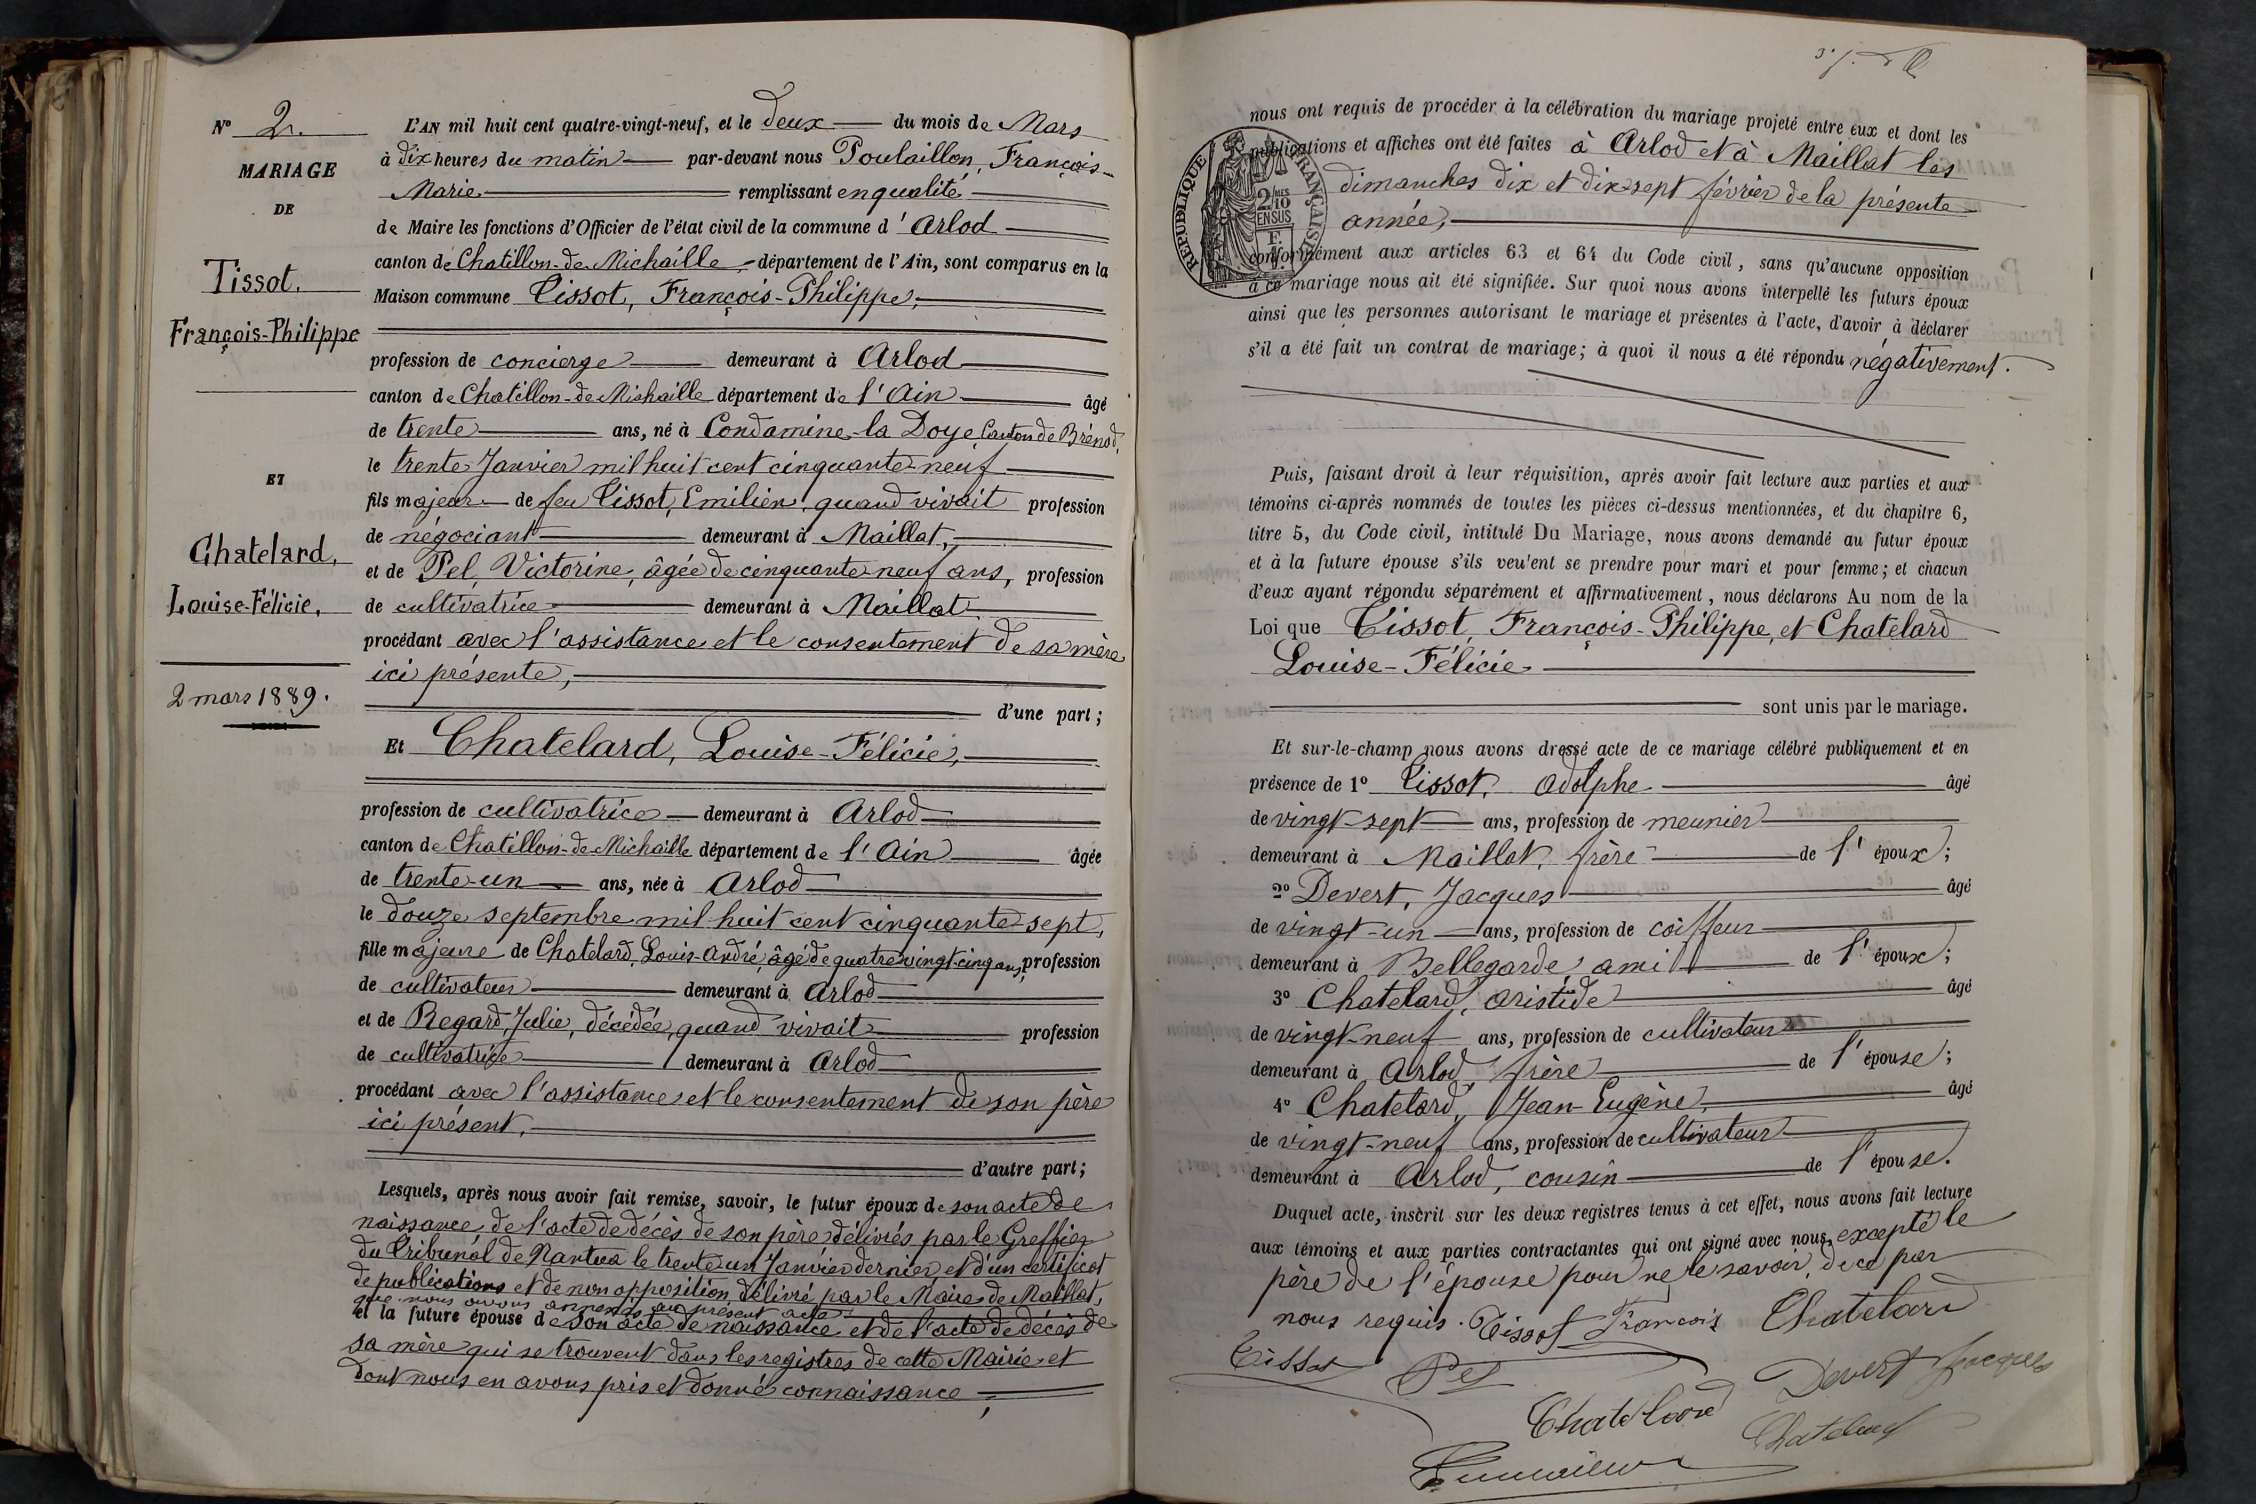 Nº 2.
MARIAGE
DE
Tissot.
François-Philippe
ET
Chatelard,
Louise-Félicie,
2 mars 1889.
L'AN mil huit cent quatre-vingt-neuf, et le deux du mois de Mars
à dix heures du matin par-devant nous Poulaillon, François-
Marie remplissant en qualité
de Maire les fonctions d'Officier de l'état civil de la commune d'Arlod
canton de Chatillon-de-Michaille département de l'Ain, sont comparus en la
Maison commune Tissot, François-Philippe,
profession de concierge demeurant à Arlod
canton de Chatillon-de-Michaille département de l'Ain âgé
de trente ans, né à Condamine-la Doye, Canton de Brénod,
le trente Janvier mil huit cent cinquante-neuf
fils majeur de feu Tissot, Emilien, quand vivait profession
de négociant demeurant à Maillat,
et de Pel, Victorine, âgée de cinquante-neuf ans, profession
de cultivatrice demeurant à Maillat
procédant avec l'assistance et le consentement de sa mère
ici présente,
d'une part;
Et Chatelard, Louise-Félicie,
profession de cultivatrice demeurant à Arlod
canton de Chatillon-de-Michaille département de l'Ain âgée
de trente-un ans, née à Arlod
le douze septembre mil huit cent cinquante-sept,
fille majeure de Chatelard, Louis-André, âgé de quatre vingt-cinq ans, profession
de cultivateur demeurant à Arlod
et de Regard, Julie, décédée, quand vivait profession
de cultivatrice demeurant à Arlod
procédant avec l'assistance et le consentement de son père
ici présent,
d'autre part;
Lesquels, après nous avoir fait remise, savoir, le futur époux de son acte de
naissance, de l'acte de décès de son père délivrés par le Greffier
du Tribunal de Nantua le trente-un Janvier dernier, et d'un certificat
de publications et de non opposition, délivré par le Maire de Maillat,
que nous avons annexés au présent acte
et la future épouse de son acte de naissance et de l'acte de décès de
sa mère qui se trouvent dans les registres de cette Mairie et
dont nous en avons pris et donné connaissance,
nous ont requis de procéder à la célébration du mariage projeté entre eux et dont les
publications et affiches ont été faites à Arlod et à Maillat les
dimanches dix et dix-sept février de la présente
année,
RÉPUBLIQUE FRANÇAISE
2/10 EN SUS
conformément aux articles 63 et 64 du Code civil, sans qu'aucune opposition
à ce mariage nous ait été signifiée. Sur quoi nous avons interpellé les futurs époux
ainsi que les personnes autorisant le mariage et présentes à l'acte, d'avoir à déclarer
s'il a été fait un contrat de mariage; à quoi il nous a été répondu négativement.
Puis, faisant droit à leur réquisition, après avoir fait lecture aux parties et aux
témoins ci-après nommés de toutes les pièces ci-dessus mentionnées, et du chapitre 6,
titre 5, du Code civil, intitulé Du Mariage, nous avons demandé au futur époux
et à la future épouse s'ils veu'ent se prendre pour mari et pour femme; et chacun
d'eux ayant répondu séparément et affirmativement, nous déclarons Au nom de la
Loi que Tissot, François-Philippe, et Chatelard
Louise-Félicie
sont unis par le mariage.
Et sur-le-champ nous avons dressé acte de ce mariage célébré publiquement et en
présence de 1º Tissot, Adolphe âgé
de vingt-sept ans, profession de meunier
demeurant à Maillat, frère de l'époux;
2º Devert, Jacques âgé
de vingt-un ans, profession de coiffeur
demeurant à Bellegarde, ami de l'époux;
3º Chatelard, Aristide âgé
de vingt-neuf ans, profession de cultivateur
demeurant à Arlod, frère de l'épouse;
4º Chatelard, Jean-Eugène, âgé
de vingt-neuf ans, profession de cultivateur
demeurant à Arlod, cousin de l'épouse.
Duquel acte, inscrit sur les deux registres tenus à cet effet, nous avons fait lecture
aux témoins et aux parties contractantes qui ont signé avec nous, excepté le
père de l'épouse pour ne le savoir, de ce par
nous requis. Tissot François Chatelard
Tissot Pel Devert Jacques
Chatelard Chatelard